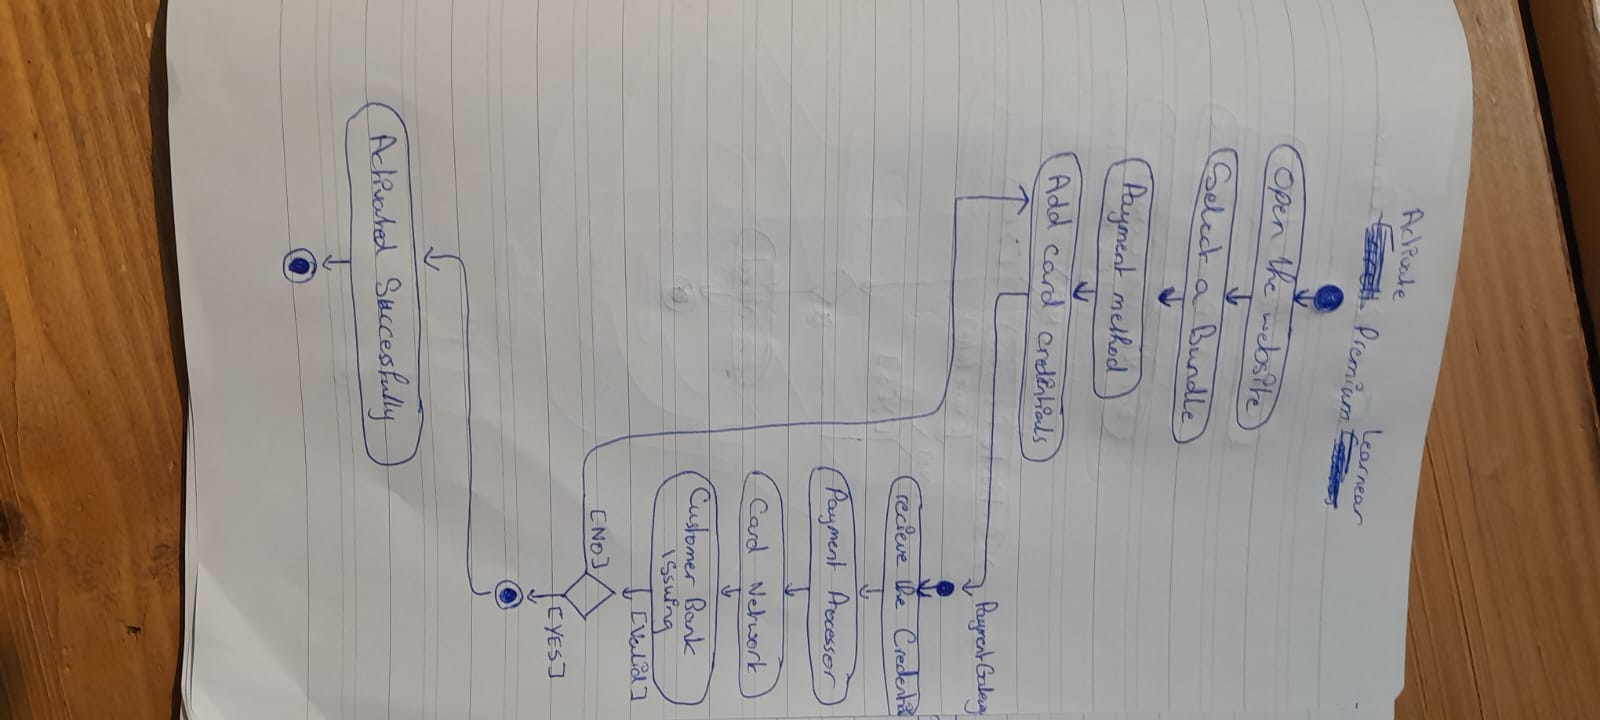 Activate
Premium Learnear
Open the website
Select a Bundle
Payment method
Add card credintials
Payment
recieve the Credentia
Payment Processor
Card Network
Customer Bank
issuing
[Valid]
[NO]
[YES]
Activated Successfully